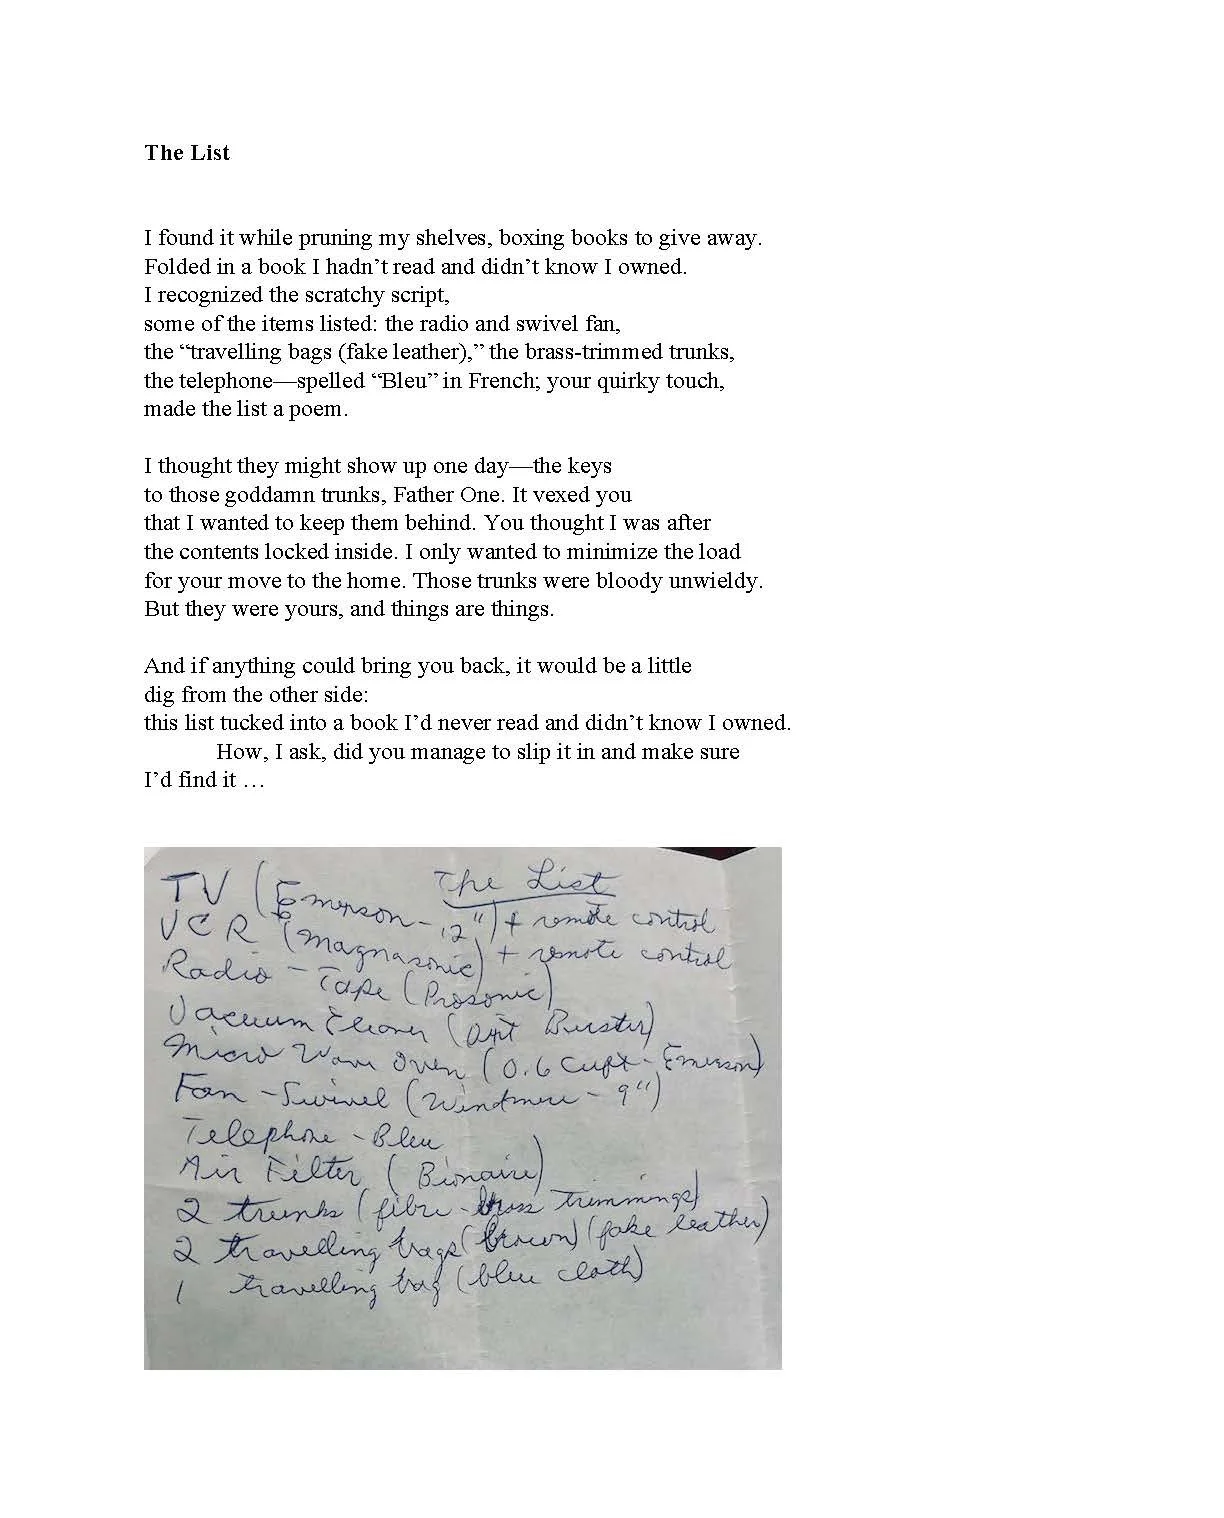 The List
I found it while pruning my shelves, boxing books to give away.
Folded in a book I hadn’t read and didn’t know I owned.
I recognized the scratchy script,
some of the items listed: the radio and swivel fan,
the “travelling bags (fake leather),” the brass-trimmed trunks,
the telephone—spelled “Bleu” in French; your quirky touch,
made the list a poem.
I thought they might show up one day—the keys
to those goddamn trunks, Father One. It vexed you
that I wanted to keep them behind. You thought I was after
the contents locked inside. I only wanted to minimize the load
for your move to the home. Those trunks were bloody unwieldy.
But they were yours, and things are things.
And if anything could bring you back, it would be a little
dig from the other side:
this list tucked into a book I’d never read and didn’t know I owned.
How, I ask, did you manage to slip it in and make sure
I’d find it …
The List
TV (Emerson - 12") + remote control
VCR (Magnasonic) + remote control
Radio - Tape (Prosonic)
Vacuum (Dirt Burster)
Micro Wave Oven (0.6 Cuft - Emerson)
Fan - Swivel (Windmere - 9")
Telephone - Bleu
Air Filter (Bionaire)
2 trunks (fibre - brass trimmings)
2 travelling bags (brown) (fake leather)
1 travelling bag (blue cloth)